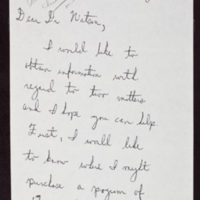 Dear Dr. Watson,
I would like to
obtain information with
regard to two matters
and I hope you can help.
First, I would like
to know where I might
purchase a pogrom of